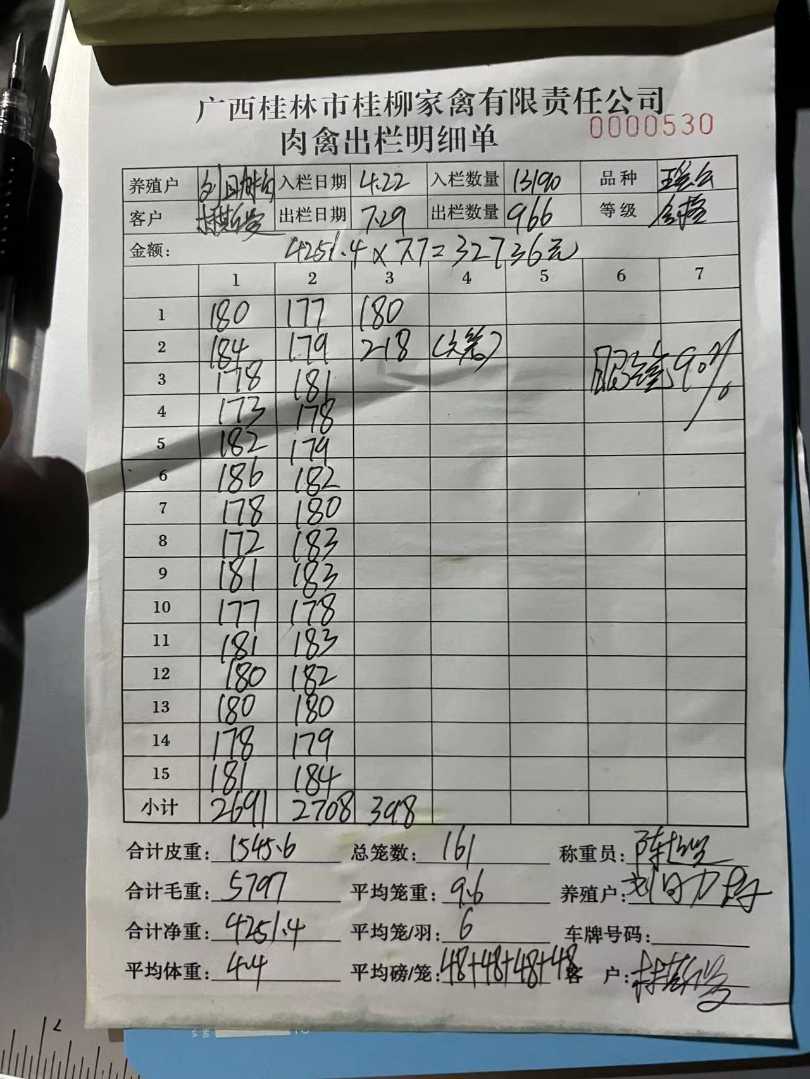 广西桂林市桂柳家禽有限责任公司
肉禽出栏明细单 0000530
养殖户 入栏日期 4.22 入栏数量 13190 品种
客户 出栏日期 7.29 出栏数量 966 等级
金额: 4251.4×7.7=32736元
1 2 3 4 5 6 7
1 180 177 180
2 184 179 218
3 178 181 90%
4 173 178
5 182 179
6 186 182
7 178 180
8 172 183
9 181 183
10 177 178
11 181 183
12 180 182
13 180 180
14 178 179
15 181 184
小计 2691 2708 398
合计皮重: 1545.6 总笼数: 161 称重员: 陈
合计毛重: 5797 平均笼重: 9.6 养殖户: 刘日
合计净重: 4251.4 平均笼/羽: 6 车牌号码:
平均体重: 4.4 平均磅/笼: 48+48+48+48 客户: